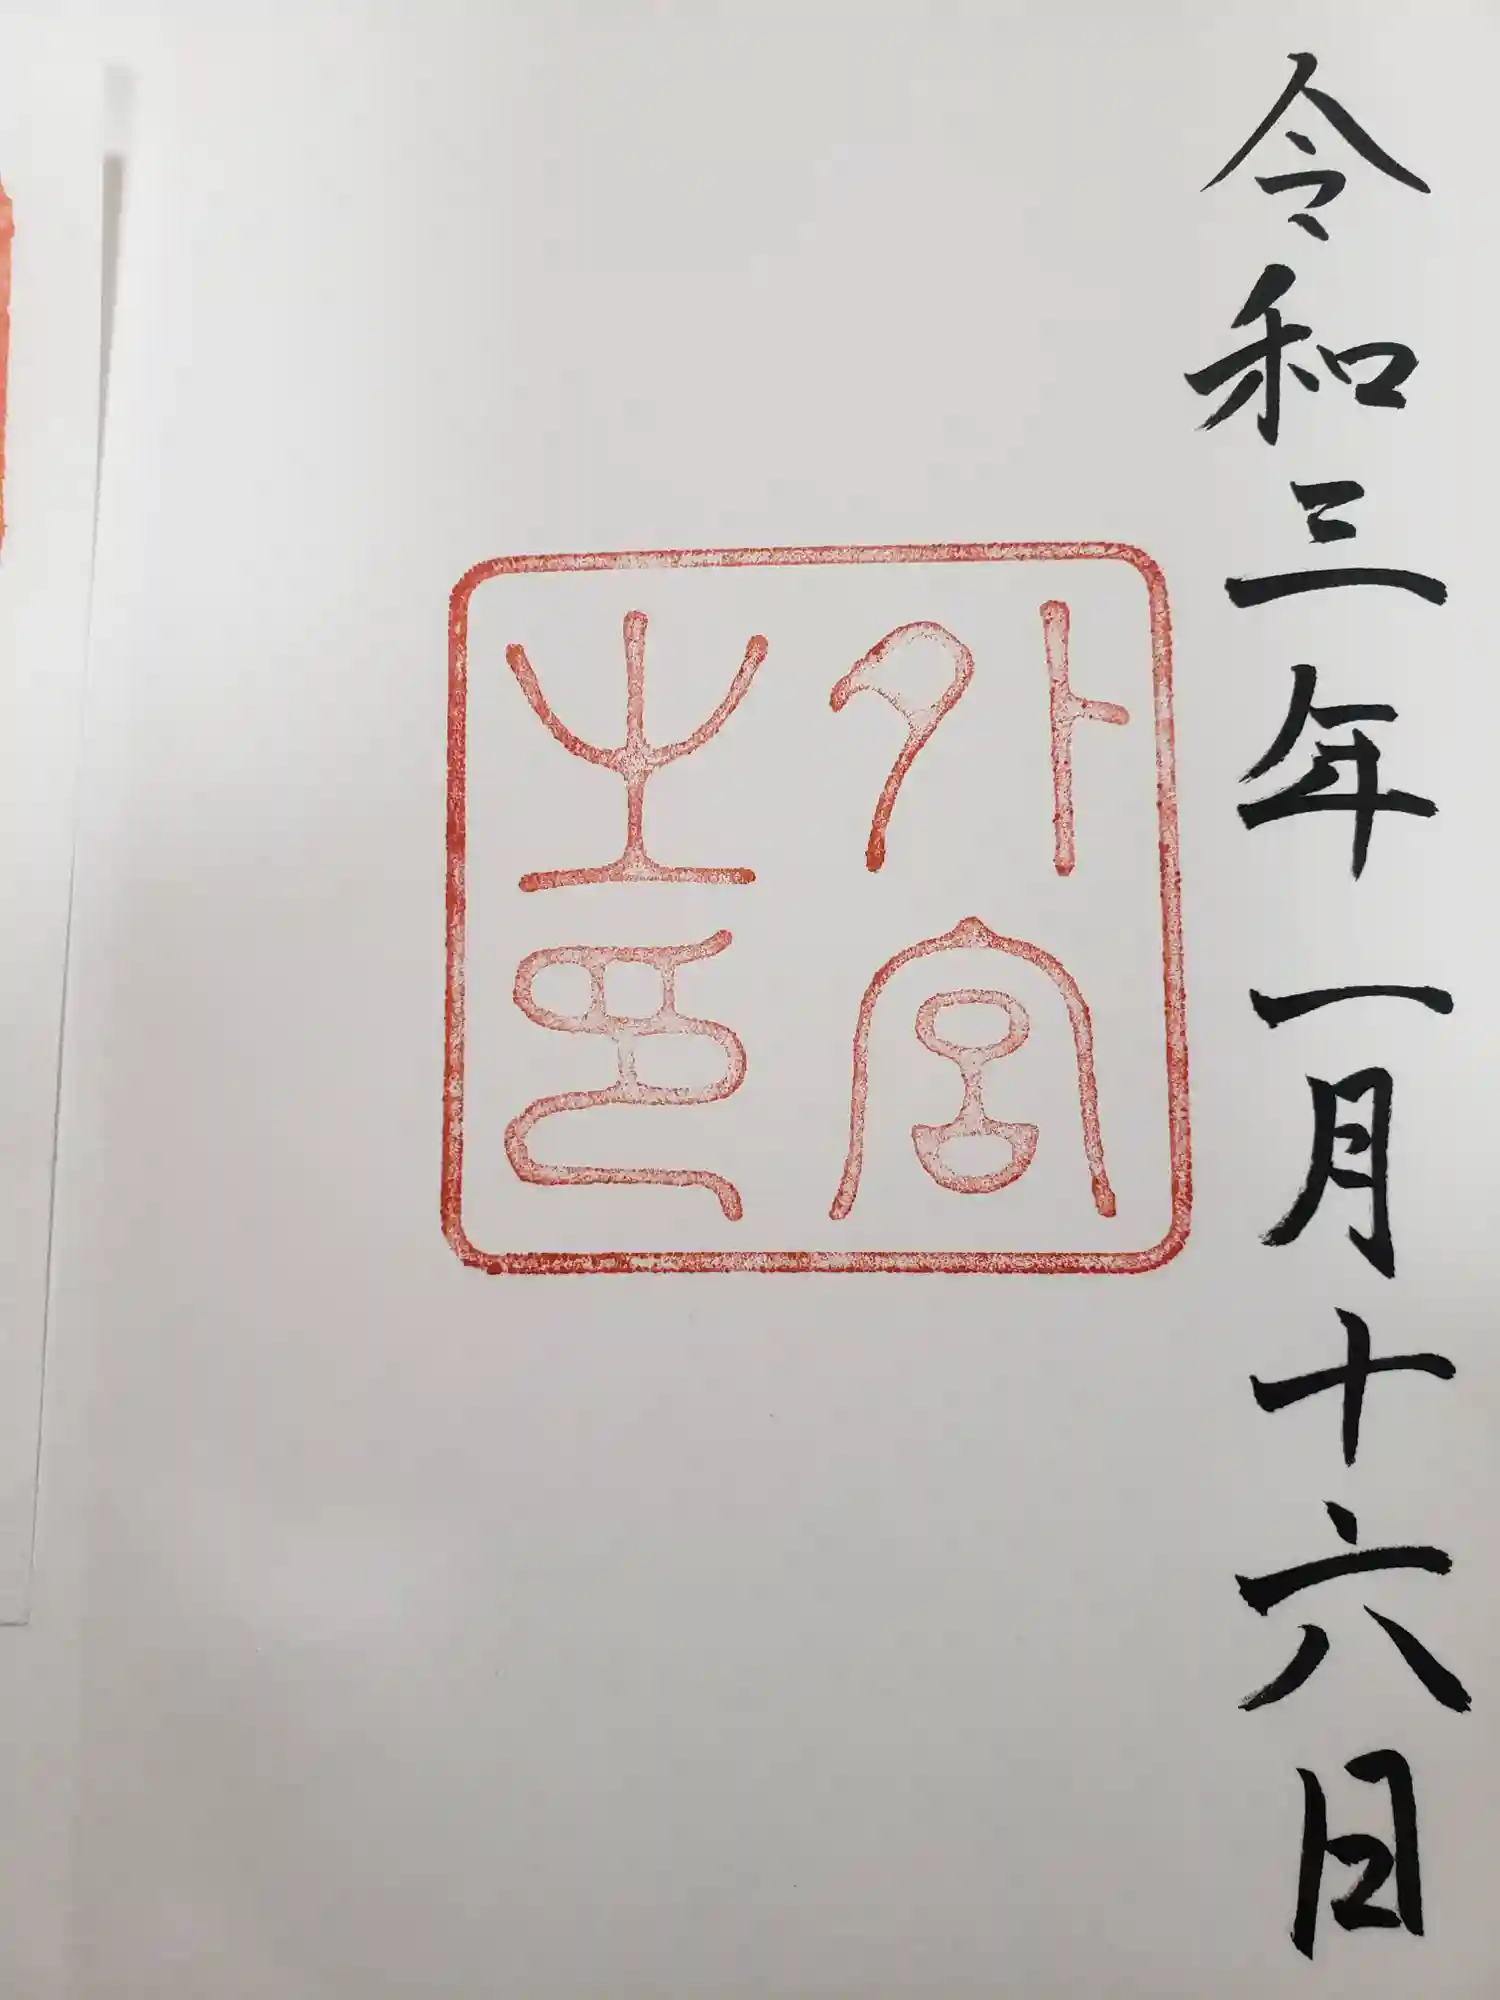 令和三年一月十六日
外宮之印